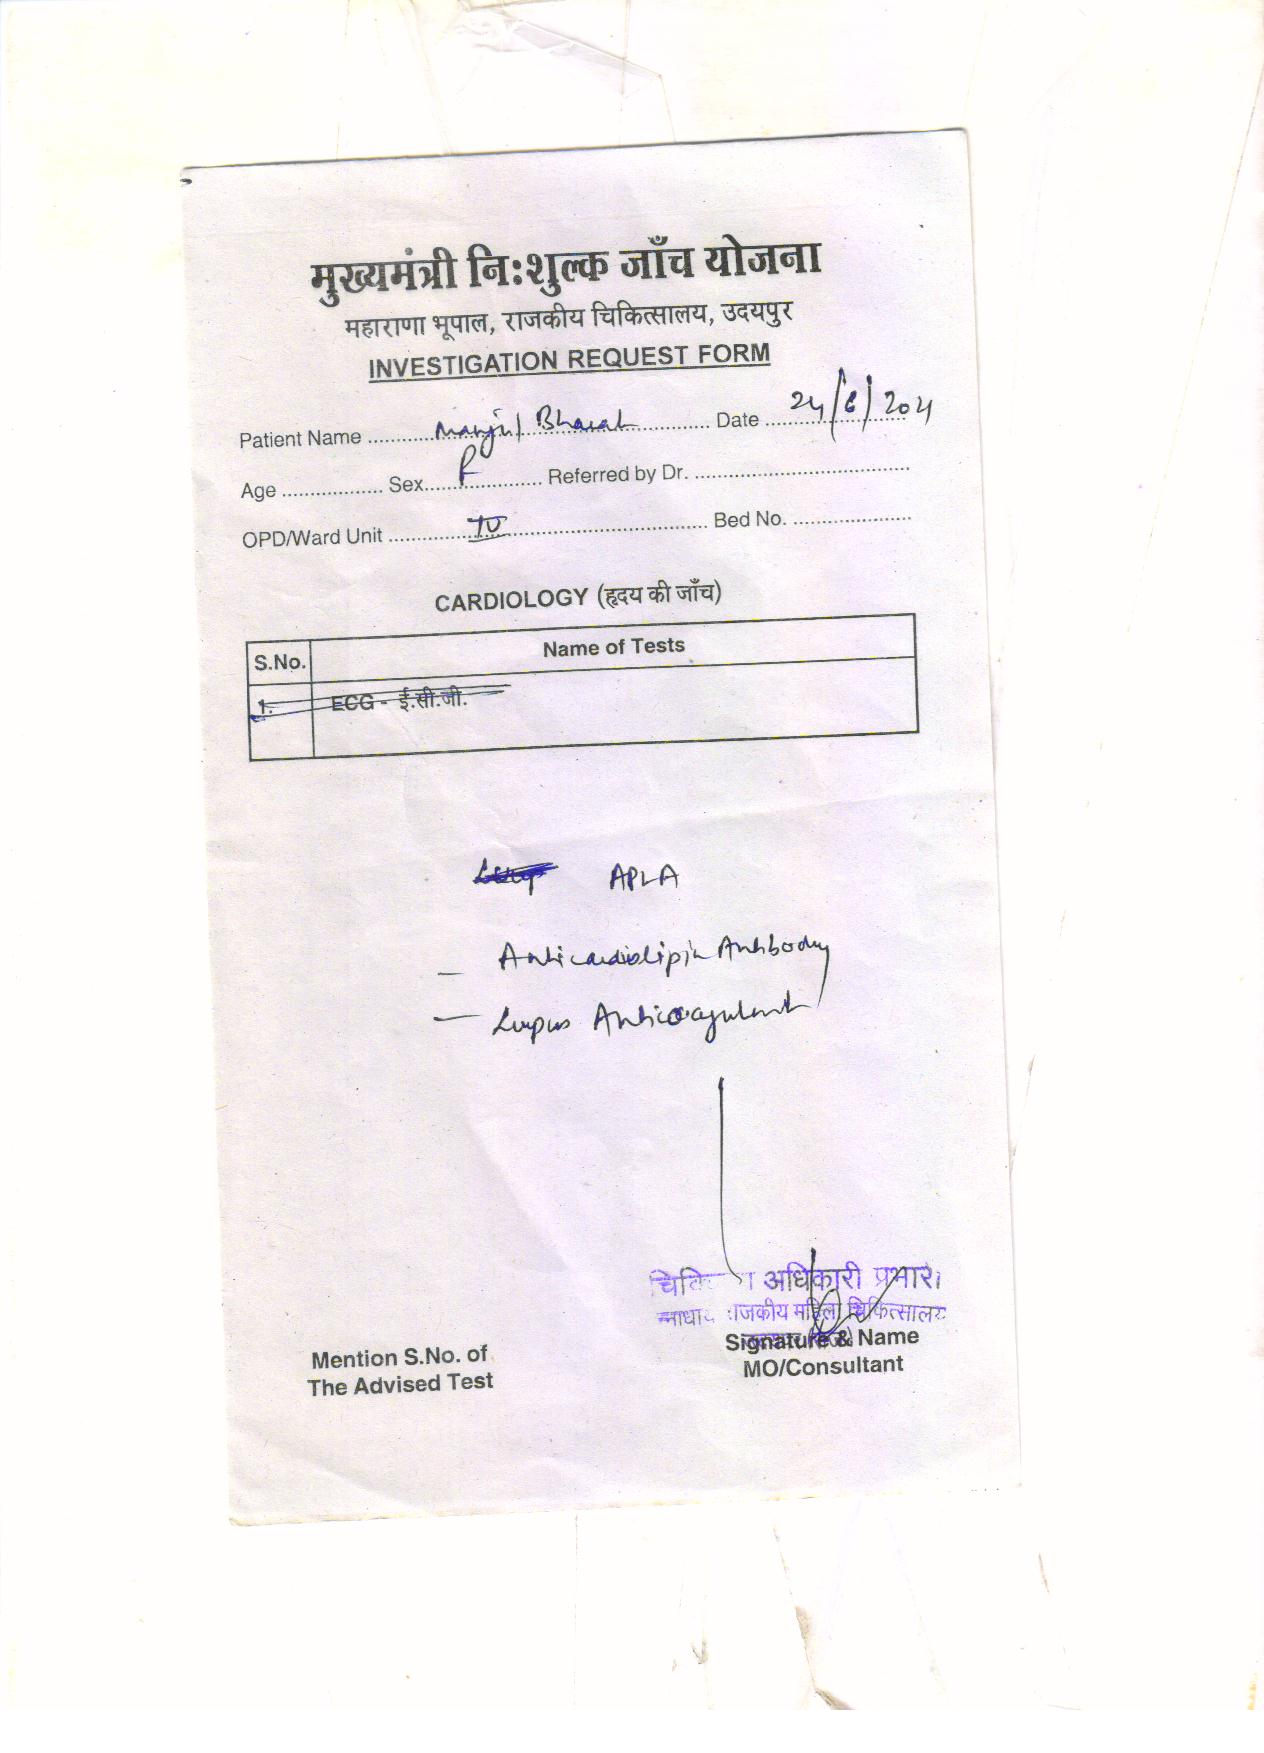 मुख्यमंत्री नि:शुल्क जाँच योजना
महाराणा भूपाल, राजकीय चिकित्सालय, उदयपुर
INVESTIGATION REQUEST FORM
Patient Name .................. Bharat .................. Date 24/6/204
Age .................. Sex F .................. Referred by Dr. ..................
OPD/Ward Unit .................. IV .................. Bed No. ..................
CARDIOLOGY (हृदय की जाँच)
S.No. Name of Tests
1. ECG - ई.सी.जी.
APLA
— Anticardiolipin Antibody
— Lupus Anticoagulant
अधिकारी
राजकीय महिला चिकित्सालय
Signature & Name
MO/Consultant
Mention S.No. of
The Advised Test